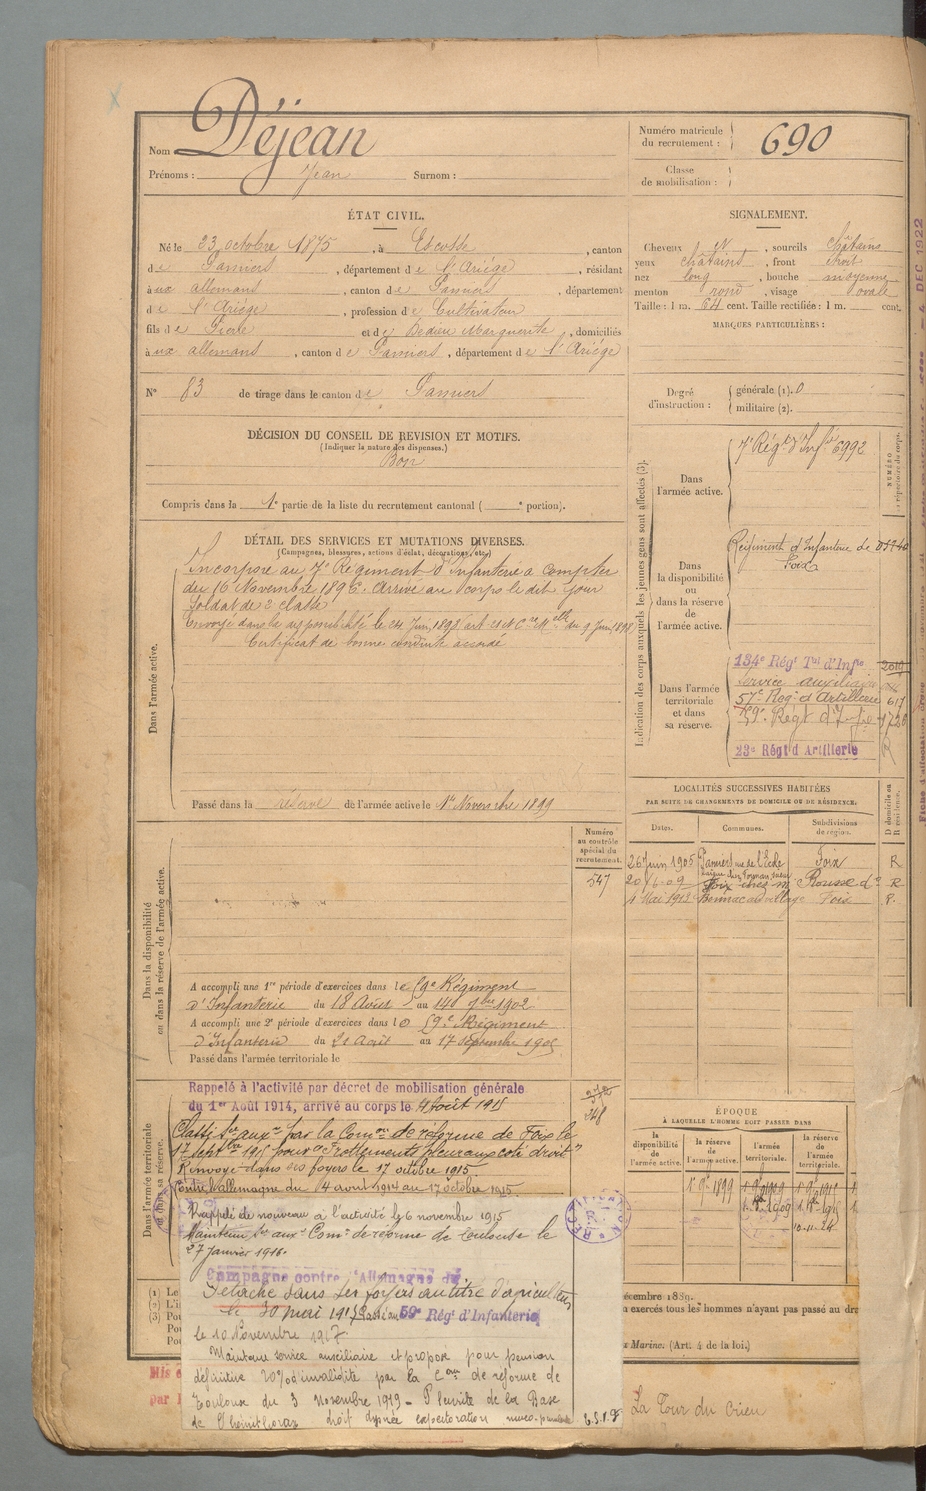 Nom Déjean
Prénoms : Jean Surnom :
Numéro matricule du recrutement : 690
Classe de mobilisation :
ÉTAT CIVIL.
Né le 23 octobre 1875, à Escosse, canton
de Pamiers, département de l'Ariége, résidant
aux allemans, canton de Pamiers, département
de l'Ariége, profession de Cultivateur
fils de Pierre et de Dedieu Marguerite, domiciliés
aux allemans, canton de Pamiers, département de l'Ariége
N° 83 de tirage dans le canton de Pamiers
SIGNALEMENT.
Cheveux N, sourcils châtains
yeux châtains, front droit
nez long, bouche moyenne
menton rond, visage ovale
Taille : 1 m. 64 cent. Taille rectifiée : 1 m. cent.
MARQUES PARTICULIÈRES :
Degré d'instruction : générale (1). 0
militaire (2).
DÉCISION DU CONSEIL DE REVISION ET MOTIFS.
(Indiquer la nature des dispenses.)
Bon
Compris dans la 1e partie de la liste du recrutement cantonal ( e portion).
DÉTAIL DES SERVICES ET MUTATIONS DIVERSES.
(Campagnes, blessures, actions d'éclat, décorations, etc.)
Dans l'armée active.
Incorporé au 7e Régiment d'Infanterie à compter
du 16 Novembre 1896. Arrivé au corps le dit jour
Soldat de 2e classe
Envoyé dans la disponibilité le 24 Juin 1898 du 9 Juin 1898
Certificat de bonne conduite accordé
Passé dans la réserve de l'armée active le 1er Novembre 1899
Indication des corps auxquels les jeunes gens sont affectés (3).
Dans l'armée active.
7e Régt d'Infie 6992
NUMÉRO au répertoire du corps.
Dans la disponibilité ou dans la réserve de l'armée active.
Régiment d'Infanterie de Foix
Dans l'armée territoriale et dans sa réserve.
134e Régt Tal d'Infie
Service auxiliaire
57e Régt d'Artillerie 617
59e Régt d'Infie
23e Régt d'Artillerie
LOCALITÉS SUCCESSIVES HABITÉES
PAR SUITE DE CHANGEMENTS DE DOMICILE OU DE RÉSIDENCE.
Dates. Communes. Subdivisions de région. D domicile ou R résidence.
26 Juin 1905 Pamiers rue de l'École Foix R
20 6-09 Foix chez M. Rousse do R
4 Mai 1913 Bonnac au village Foix R.
Dans la disponibilité ou dans la réserve de l'armée active.
Numéro au contrôle spécial du recrutement.
547
A accompli une 1re période d'exercices dans le 59e Régiment
d'Infanterie du 18 Août au 14 7bre 1902
A accompli une 2e période d'exercices dans le 59e Régiment
d'Infanterie du 21 Août au 17 septembre 1905
Passé dans l'armée territoriale le
Dans l'armée territoriale et dans sa réserve.
Rappelé à l'activité par décret de mobilisation générale
du 1er Août 1914, arrivé au corps le
Classé ser aux. par la Comon de réforme de Foix le
17 septbre 1915 pour "frottements pleuraux coté droit"
Renvoyé dans ses foyers le 17 octobre 1915
Contre l'allemagne du au 17 octobre 1915.
Rappelé de nouveau à l'activité le 6 novembre 1915
Maintenu ser aux. Comon de réforme de Toulouse le
27 janvier 1916.
Campagne contre l'Allemagne du
Détaché dans ses foyers au titre d'agriculteur
le 30 mai 191 Passé au 59e Régt d'Infanterie
le 10 Novembre 1917.
Maintenu service auxiliaire et proposé pour pension
définitive 20% d'invalidité par la Con de réforme de
Toulouse du 3 Novembre 1919 - Pleurite de la Base
de l'hémithorax droit dypnée expectoration muco-purulente
ÉPOQUE
À LAQUELLE L'HOMME DOIT PASSER DANS
la disponibilité de l'armée active. la réserve de l'armée active. l'armée territoriale. la réserve de l'armée territoriale.
1er 9bre 1899
10-11-24
(1) Le
(2) L'i
(3) Pou
Pou
Pou
décembre 1889.
exercés tous les hommes n'ayant pas passé au dra
Marine. (Art. 4 de la loi.)
Mis
par
La Tour du Crieu
4 DEC 1922